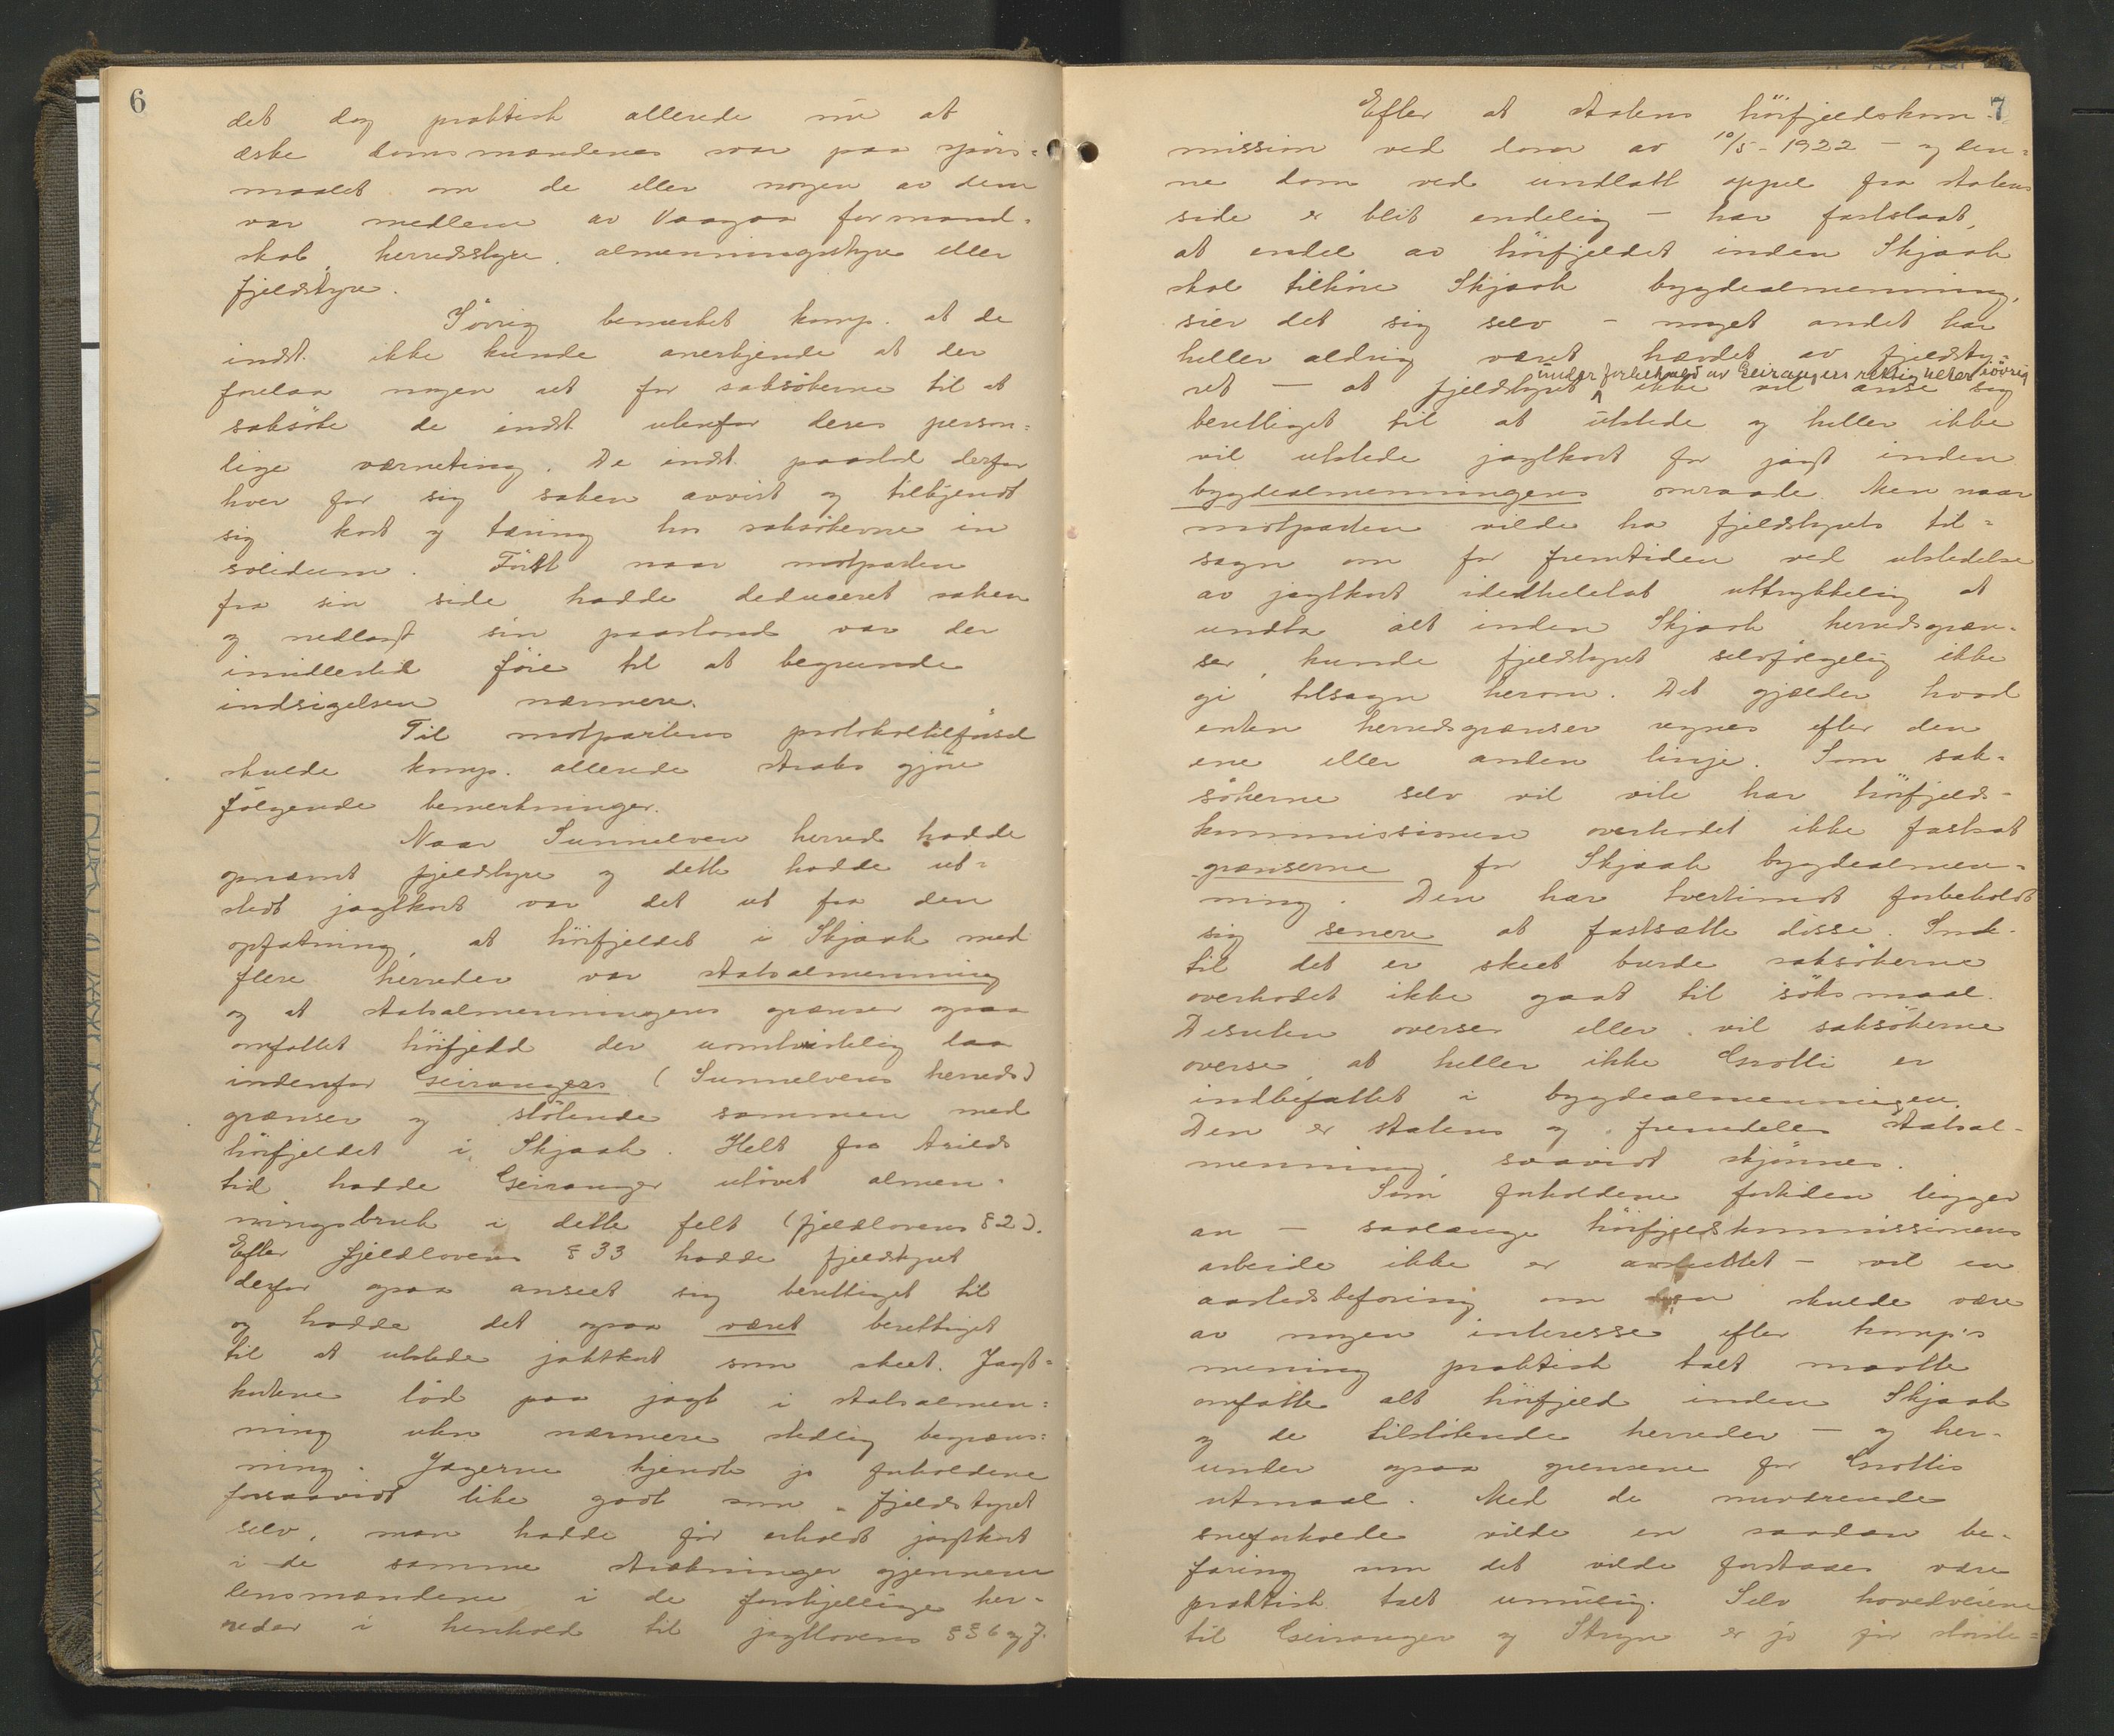 6
det dog praktisk allerede nu at
æske domsmændenes svar paa spörs=
maalet om de eller nogen av dem
var medlem av Vaagaa formand=
skab, herredsstyre, almenningsstyre eller
fjeldstyre.
Iövrig bemerket komp. at de
indst. ikke kunde anerkjende at der
forelaa nogen ret for saksökerne til at
saksöke de indst. utenfor deres person=
lige værneting. De indst. paastod derfor
hver for sig saken avvist og tilkjendt
sig kost og tæring hos saksökerne in
solidum. Först naar motparten
fra sin side hadde deduceret saken
og nedlagt sin paastand var der
imidlertid föie til at begrunde
indsigelsen nærmere.
Til motpartens protokoltilförsel
skulde komp. allerede straks gjöre
fölgende bemerkninger.
Naar Sunnelven herred hadde
opnævnt fjeldstyre og dette hadde ut=
stedt jagtkort var det ut fra den
opfatning, at höifjeldet i Skjaak med
flere herreder var statsalmenning
og at statsalmenningens grænser ogsaa
omfattet höifjeld der uomtvistelig laa
indenfor Geirangers (Sunnelvens herreds)
grænser og stötende sammen med
höifjeldet i Skjaak. Helt fra Arilds
tid hadde Geiranger utövet almen-
ningsbruk i dette felt (fjeldlovens §2).
Efter fjeldlovens § 33 hadde fjeldstyret
derfor ogsaa anseet sig berettiget til
og hadde det ogsaa været berettiget
til at utstede jaktkort som skeet. Jagt=
kortene löd paa jagt i statsalmen=
ning uten nærmere stedlig begræns=
ning. Jægerne kjendte jo forholdene
forsaavidt like godt som fjeldstyret
selv, man hadde för erholdt jagtkort
i de samme strækninger gjennem
lensmændene i de forskjellige her-
reder i henhold til jagtlovens §§ 6 og 7.
7
Efter at statens höifjeldskom-
mission ved dom av 10/5 - 1922 - og den=
ne dom ved undlatt appel fra statens
side er blit endelig - har fastslaat,
at endel av höifjeldet inden Skjaak
skal tilhöre Skjaak bygdealmenning,
sier det sig selv - noget andet har
heller aldrig været hævdet av fjeldsty=
under forbehold av Geirangers rettigheter iövrig
ret - at fjeldstyret ikke vil anse sig
berettiget til at utstede og heller ikke
vil utstede jagtkort for jagt inden
bygdealmenningens omraade. Men naar
motparten vilde ha fjeldstyrets til=
sagn om for fremtiden ved utstedelse
av jagtkort idethele tat uttrykkelig at
undta alt inden Skjaak herredsgræn-
ser, kunde fjeldstyret selvfölgelig ikke
gi tilsagn herom. Det gjælder hvad
enten herredsgrænser regnes efter den
ene eller anden linje. Som sak-
sökerne selv vil vite har höifjelds-
kommissionen overhodet ikke fastsat
grænserne for Skjaak bygdealmen-
ning. Den har tvertimot forbeholdt
sig senere at fastsætte disse. Ind-
til det er skeet burde saksökerne
overhodet ikke gaat til söksmaal.
Desuten overser eller vil saksökerne
overse at heller ikke Grotli er
indbefattet i bygdealmenningen.
Den er statens og fremdeles statsal-
menning, saavidt skjönnes.
Som forholdene fortiden ligger
an - saalænge höifjeldskommissionens
arbeide ikke er avsluttet - vil en
aastedsbefaring om den skulde være
av nogen interesse efter komp's
mening praktisk talt maatte
omfatte alt höifjeld inden Skjaak
og de tilstötende herreder - og her-
under ogsaa grensene for Grotlis
utmaal. Med de nuværende
sneforholde vilde en saadan be-
faring om det vilde foretaes være
praktisk talt umulig. Selv hovedveiene
til Geiranger og Stryn er jo for störste=